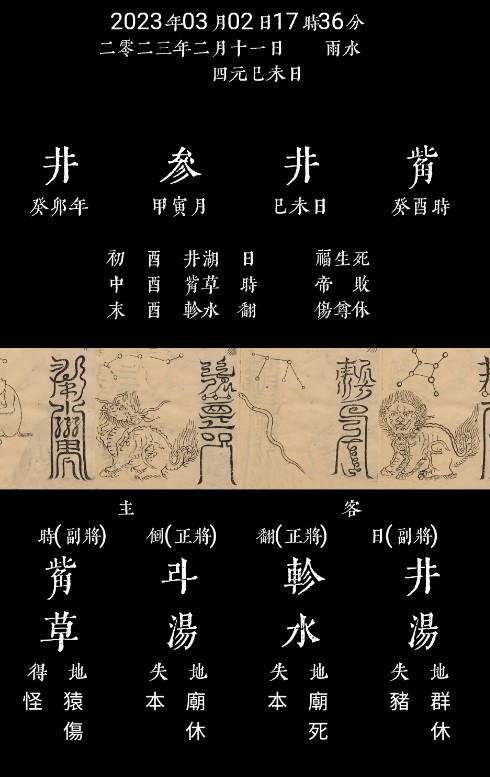 2023年03月02日17時36分
二零二三年二月十一日 雨水
四元己未日
井 參 井 觜
癸卯年 甲寅月 己未日 癸酉時
初 酉 井湖 日 福生死
中 酉 觜草 時 帝 敗
末 酉 軫水 翻 傷尊休
主 客
時(副將) 倒(正將) 翻(正將) 日(副將)
觜 斗 軫 井
草 湯 水 湯
得 地 失 地 失 地 失 地
怪 猿 本 廟 本 廟 豬 群
傷 休 死 休